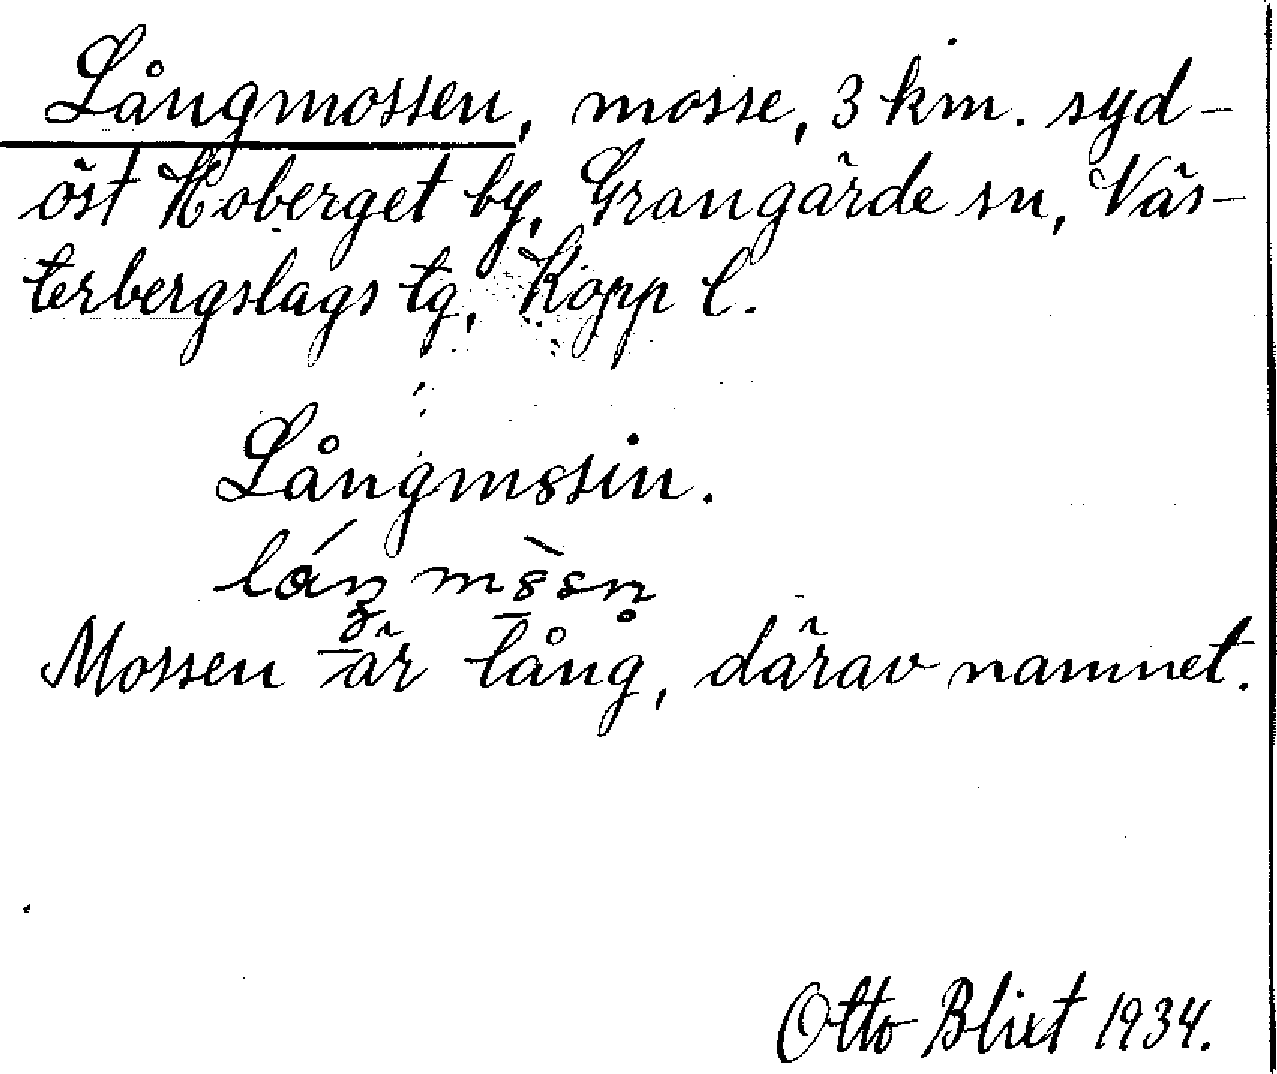 Långmossen, mosse, 3 km. syd-
öst Hoberget by, Grangärde sn, Väs-
terbergslags tg, Kopp l.
Långmssin.
Mossen är lång, därav namnet.
Otto Blixt 1934.